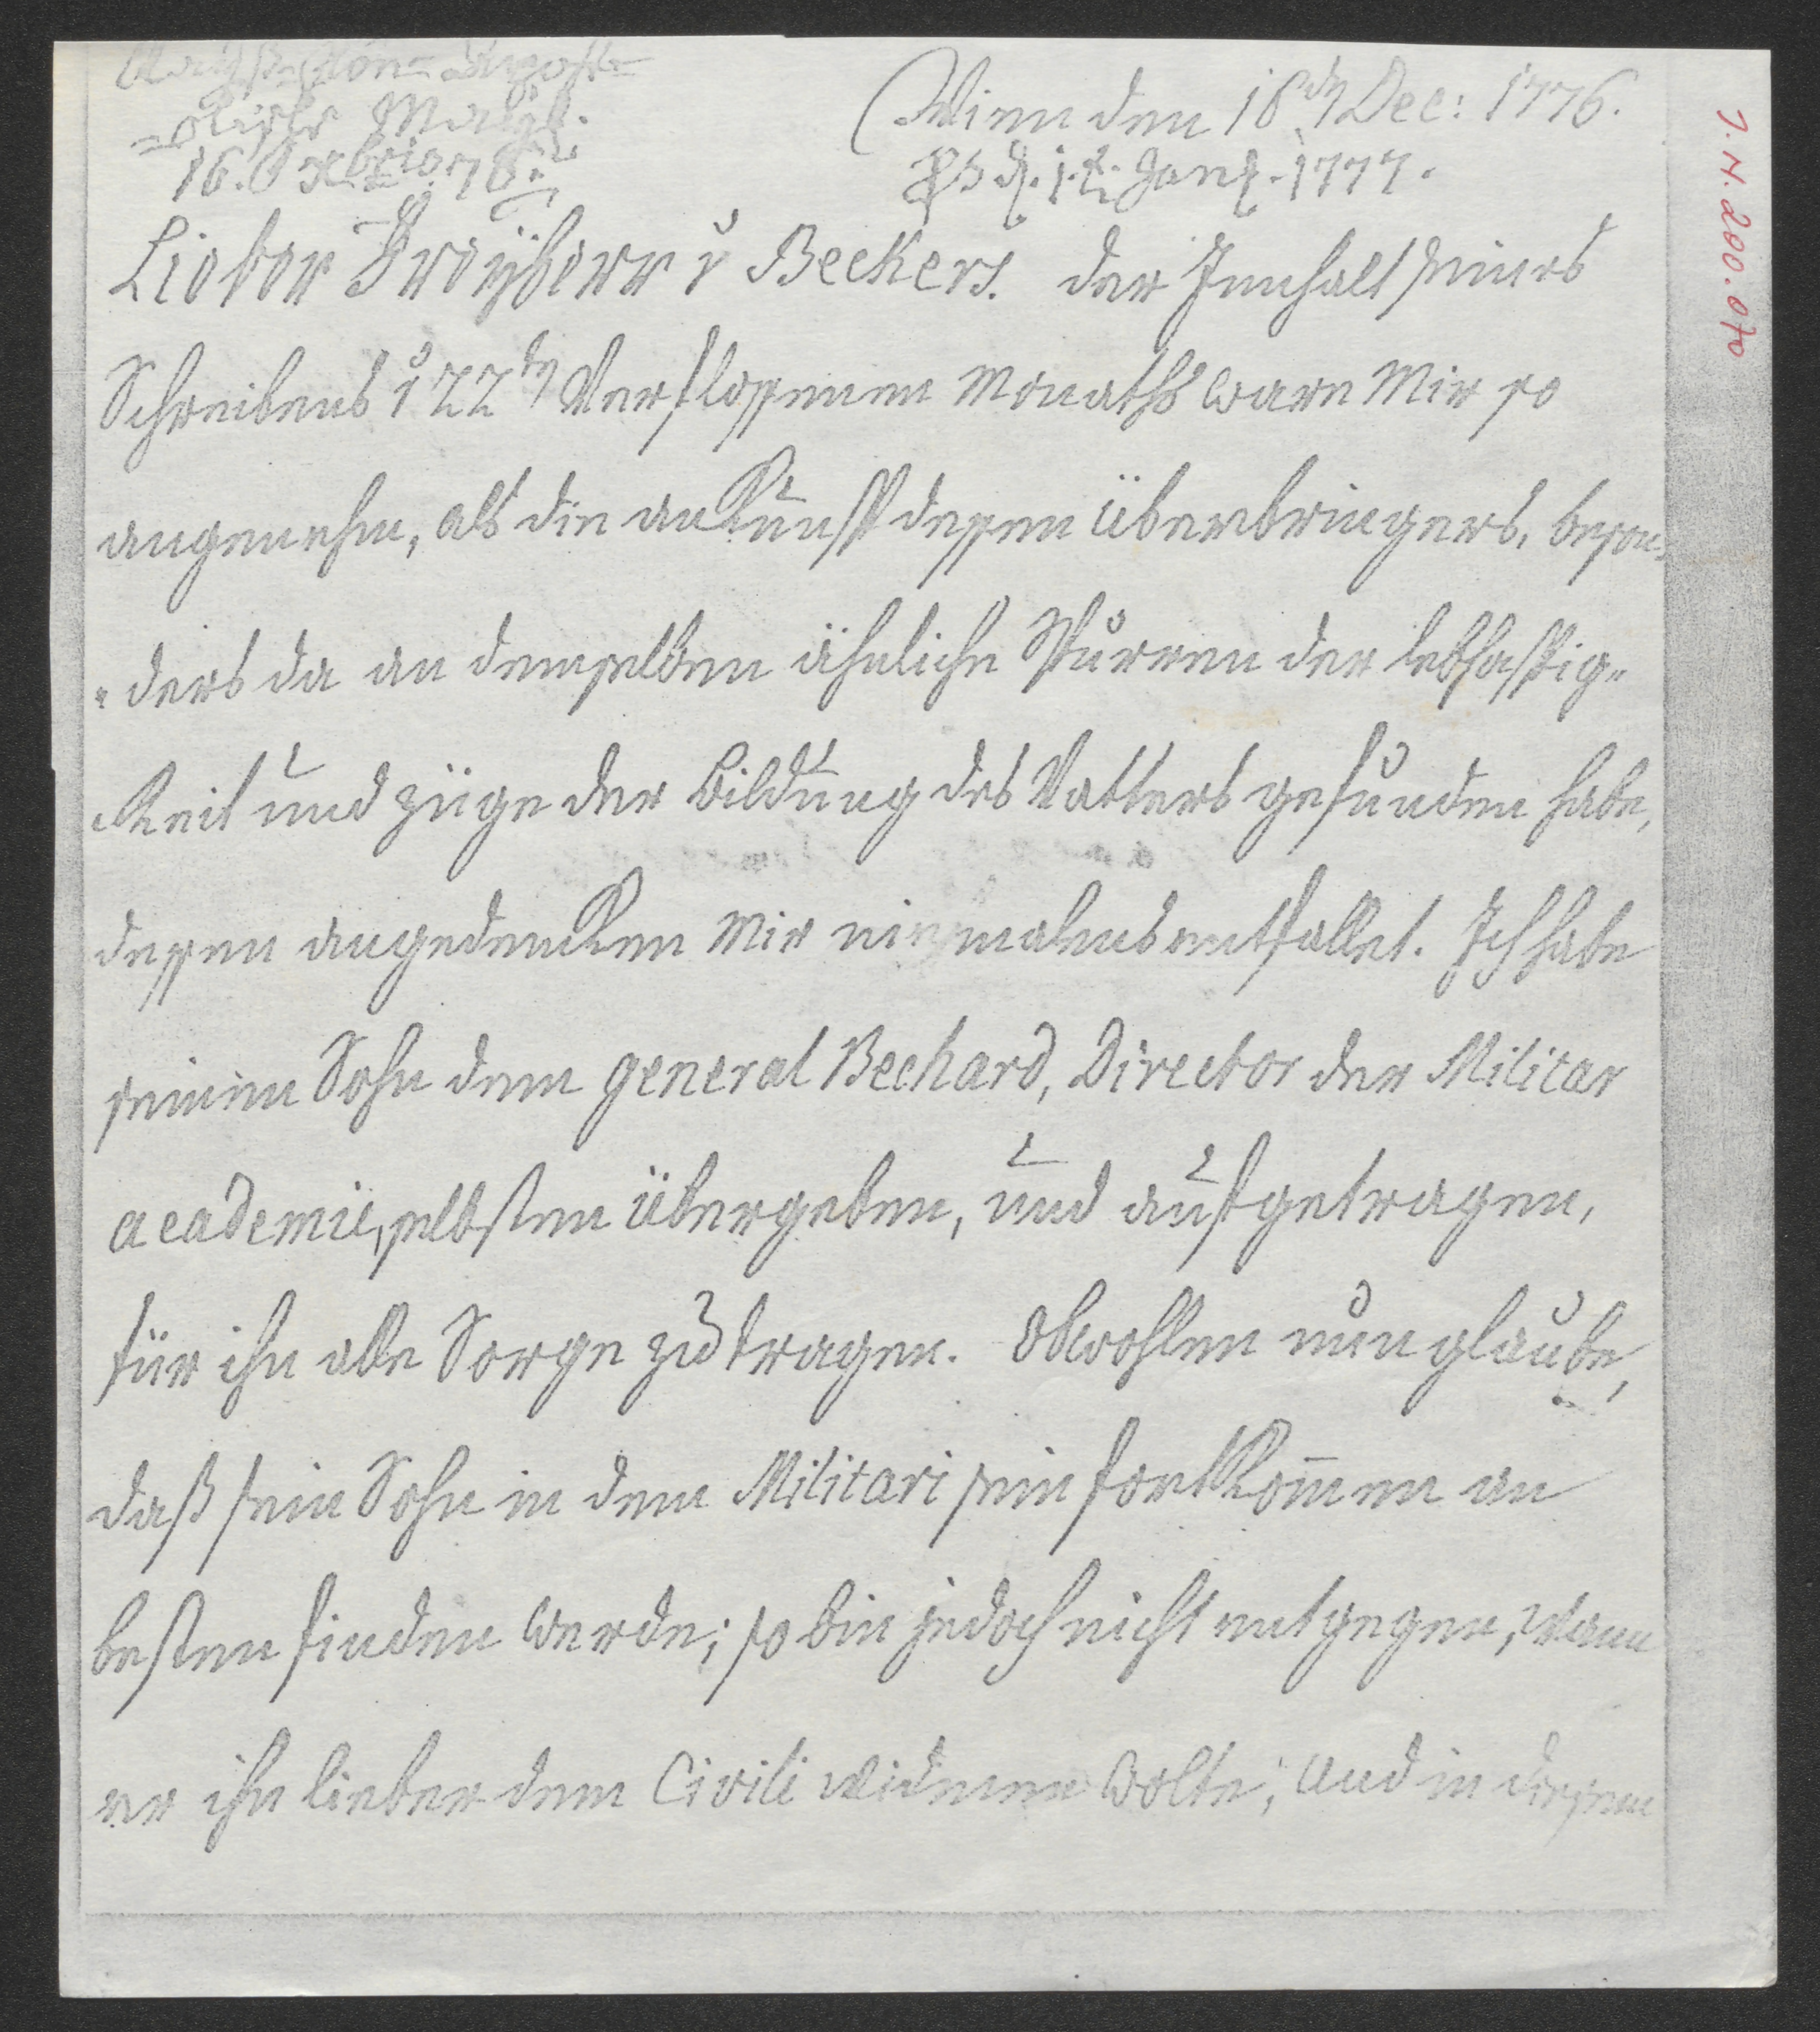 Kayß: Kön: Apost:
=olische Mayst:
16. Xbris 76.
Wien den 18t Dec: 1776.
Ps d. 12. Jan. 1777.
Lieber Freyherr v Beckers. der Innhalt seines
Schreibens v 22ten Verflossenen Monaths ware Mir so
angenehm, als die ankunfft dessen überbringers, beson=
=ders da an demselben ähnliche Spurren der lebhafftig=
=keit und züge der Bildung des Vatters gefunden habe,
dessen angedencken Mir niemalens entfallet. Ich habe
seinen Sohn dem general Bechard, Director der Militar
academie, selbsten übergeben, und aufgetragen,
für ihn alle Sorge zu tragen. Obwohlen nun glaube,
daß sein Sohn in dem Militari sein fortkommen am
besten finden werde; so bin jedoch nicht entgegen, Wann
er ihn lieber dem Civili widmen wolte; und in dessen
J.N. 200.070